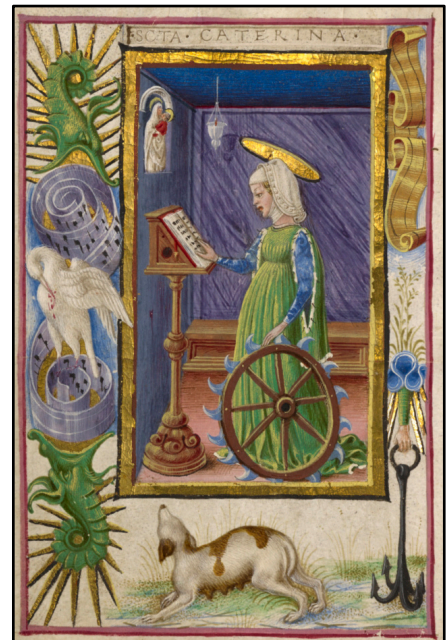 SCTA · CATERINA ·